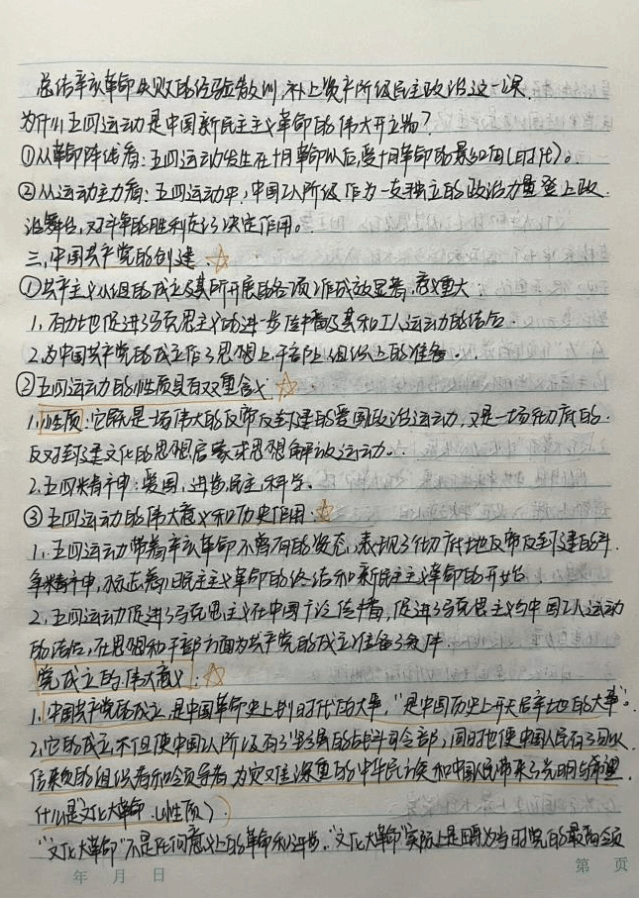 总结辛亥革命失败的经验教训,补上资产阶级民主政治这一课.
为什么五四运动是中国新民主主义革命的伟大开端?
①从革命阵线看:五四运动发生在十月革命以后,受十月革命的影响(时代)。
②从运动主力看:五四运动中,中国工人阶级作为一支独立的政治力量登上政
治舞台,对斗争的胜利起了决定作用。
三.中国共产党的创建.
①共产主义小组的成立及其所开展的各项工作成效显著,意义重大
1.有力地促进了马克思主义的进一步传播及其和工人运动的结合.
2.为中国共产党的成立作了思想上,干部上,组织上的准备.
②五四运动的性质具有双重含义
1.性质:它既是一场伟大的反帝反封建的爱国政治运动,又是一场彻底的.
反对封建文化的思想启蒙或思想解放运动.
2.五四精神:爱国,进步,民主,科学.
③五四运动的伟大意义和历史作用.
1.五四运动带着辛亥革命不曾有的姿态,表现了彻底地反帝反封建的斗.
争精神,标志着旧民主主义革命的终结和新民主主义革命的开始
2.五四运动促进了马克思主义在中国广泛传播,促进了马克思主义与中国工人运动
的结合,在思想和干部方面为共产党的成立准备了条件
党成立的伟大意义:
1.中国共产党的成立,是中国革命史上划时代的大事,"是中国历史上开天辟地的大事"。
2.它的成立,不但使中国工人阶级有了坚强的战斗司令部,同时也使中国人民有了可以
信赖的组织者和领导者,为灾难深重的中华民族和中国人民带来了光明与希望.
什么是"文化大革命.(性质)
"文化大革命"不是任何意义上的革命和进步."文化大革命"实际上是因为当时党的最高领
年 月 日 第 页